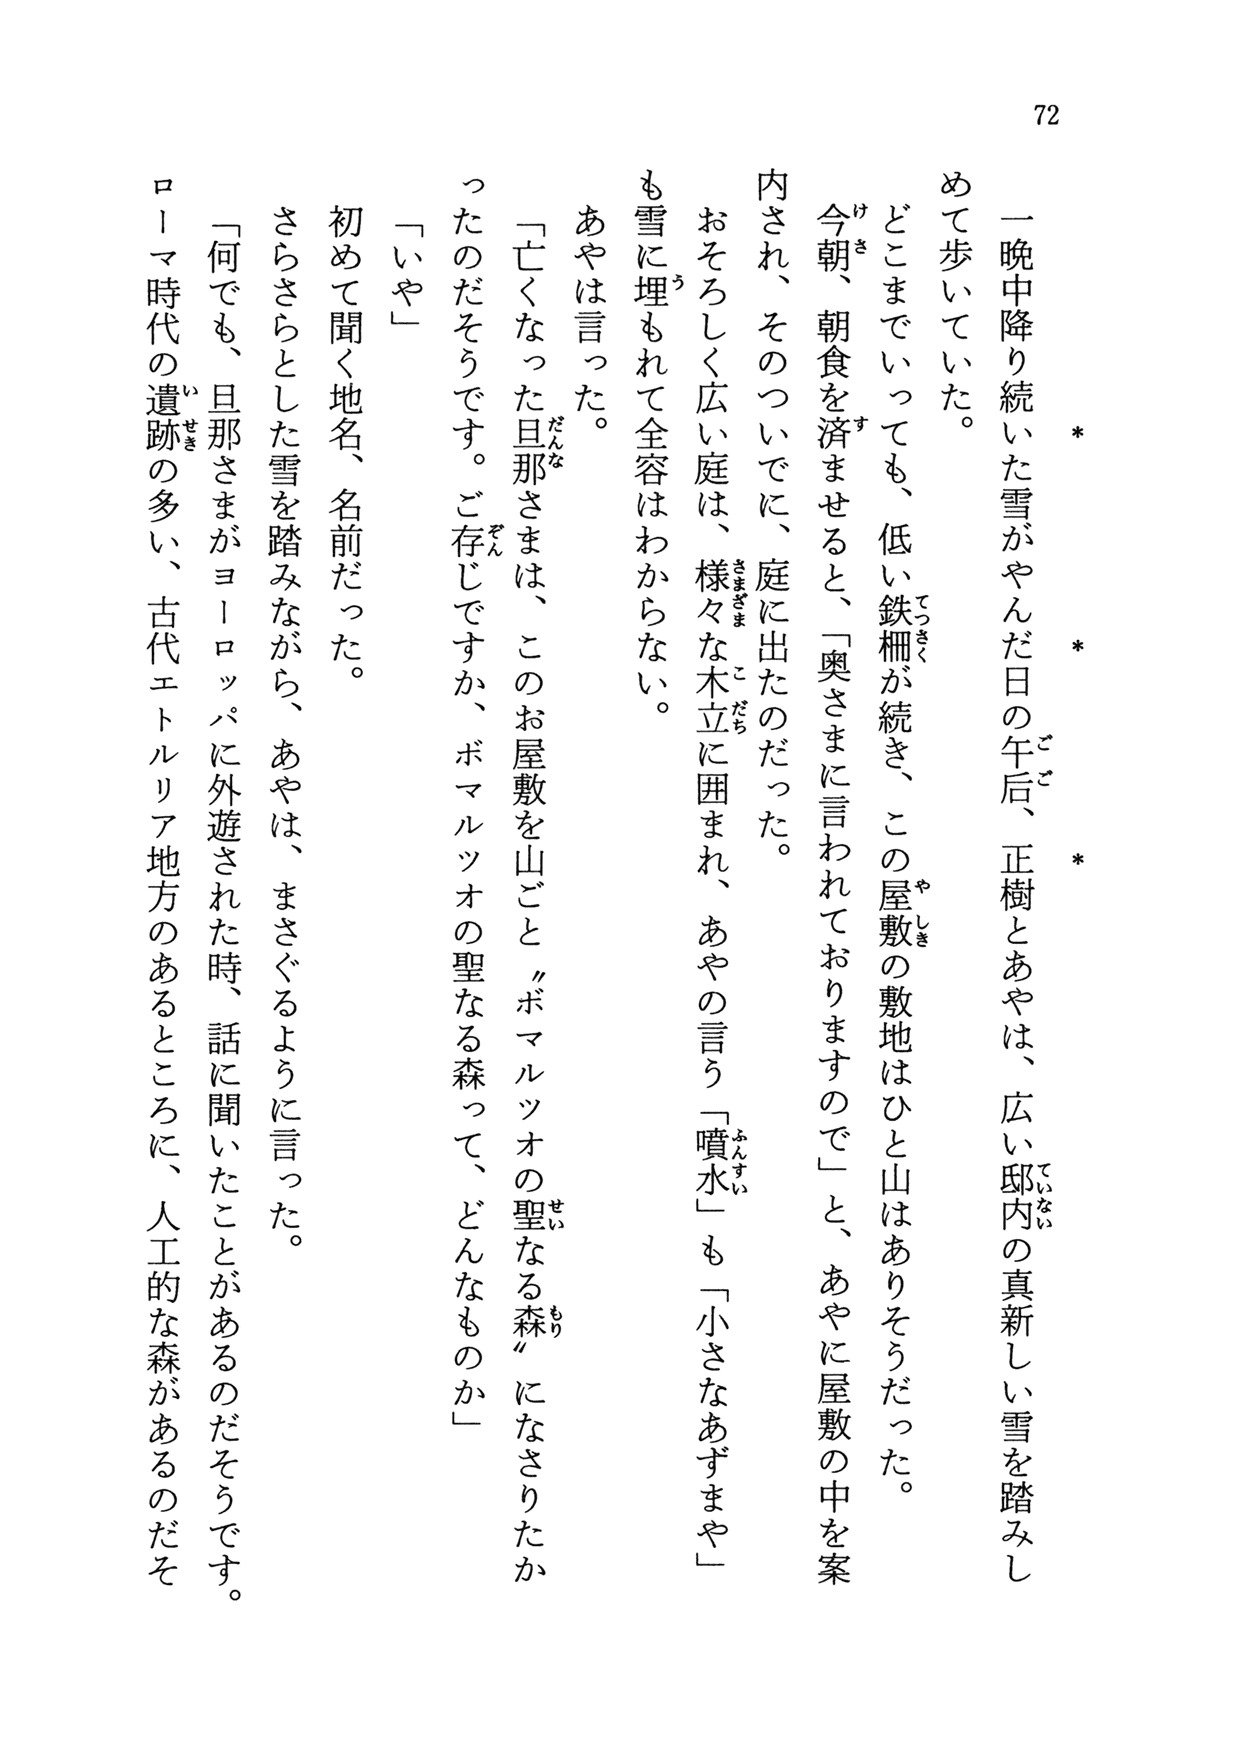 72
＊　＊　＊
一晩中降り続いた雪がやんだ日の午后、正樹とあやは、広い邸内の真新しい雪を踏みし
めて歩いていた。
どこまでいっても、低い鉄柵が続き、この屋敷の敷地はひと山はありそうだった。
今朝、朝食を済ませると、「奥さまに言われておりますので」と、あやに屋敷の中を案
内され、そのついでに、庭に出たのだった。
おそろしく広い庭は、様々な木立に囲まれ、あやの言う「噴水」も「小さなあずまや」
も雪に埋もれて全容はわからない。
あやは言った。
「亡くなった旦那さまは、このお屋敷を山ごと〝ボマルツオの聖なる森〟になさりたか
ったのだそうです。ご存じですか、ボマルツオの聖なる森って、どんなものか」
「いや」
初めて聞く地名、名前だった。
さらさらとした雪を踏みながら、あやは、まさぐるように言った。
「何でも、旦那さまがヨーロッパに外遊された時、話に聞いたことがあるのだそうです。
ローマ時代の遺跡の多い、古代エトルリア地方のあるところに、人工的な森があるのだそ